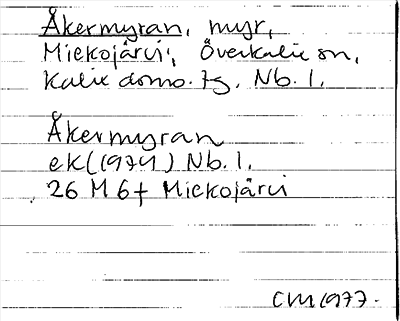 Åkermyran, myr,
Miekojärvi, Överkalix sn,
Kalix doms. tg, Nb. l.
Åkermyran
ek (1974) Nb. l.
26 M 6f Miekojärvi
CM 1977.